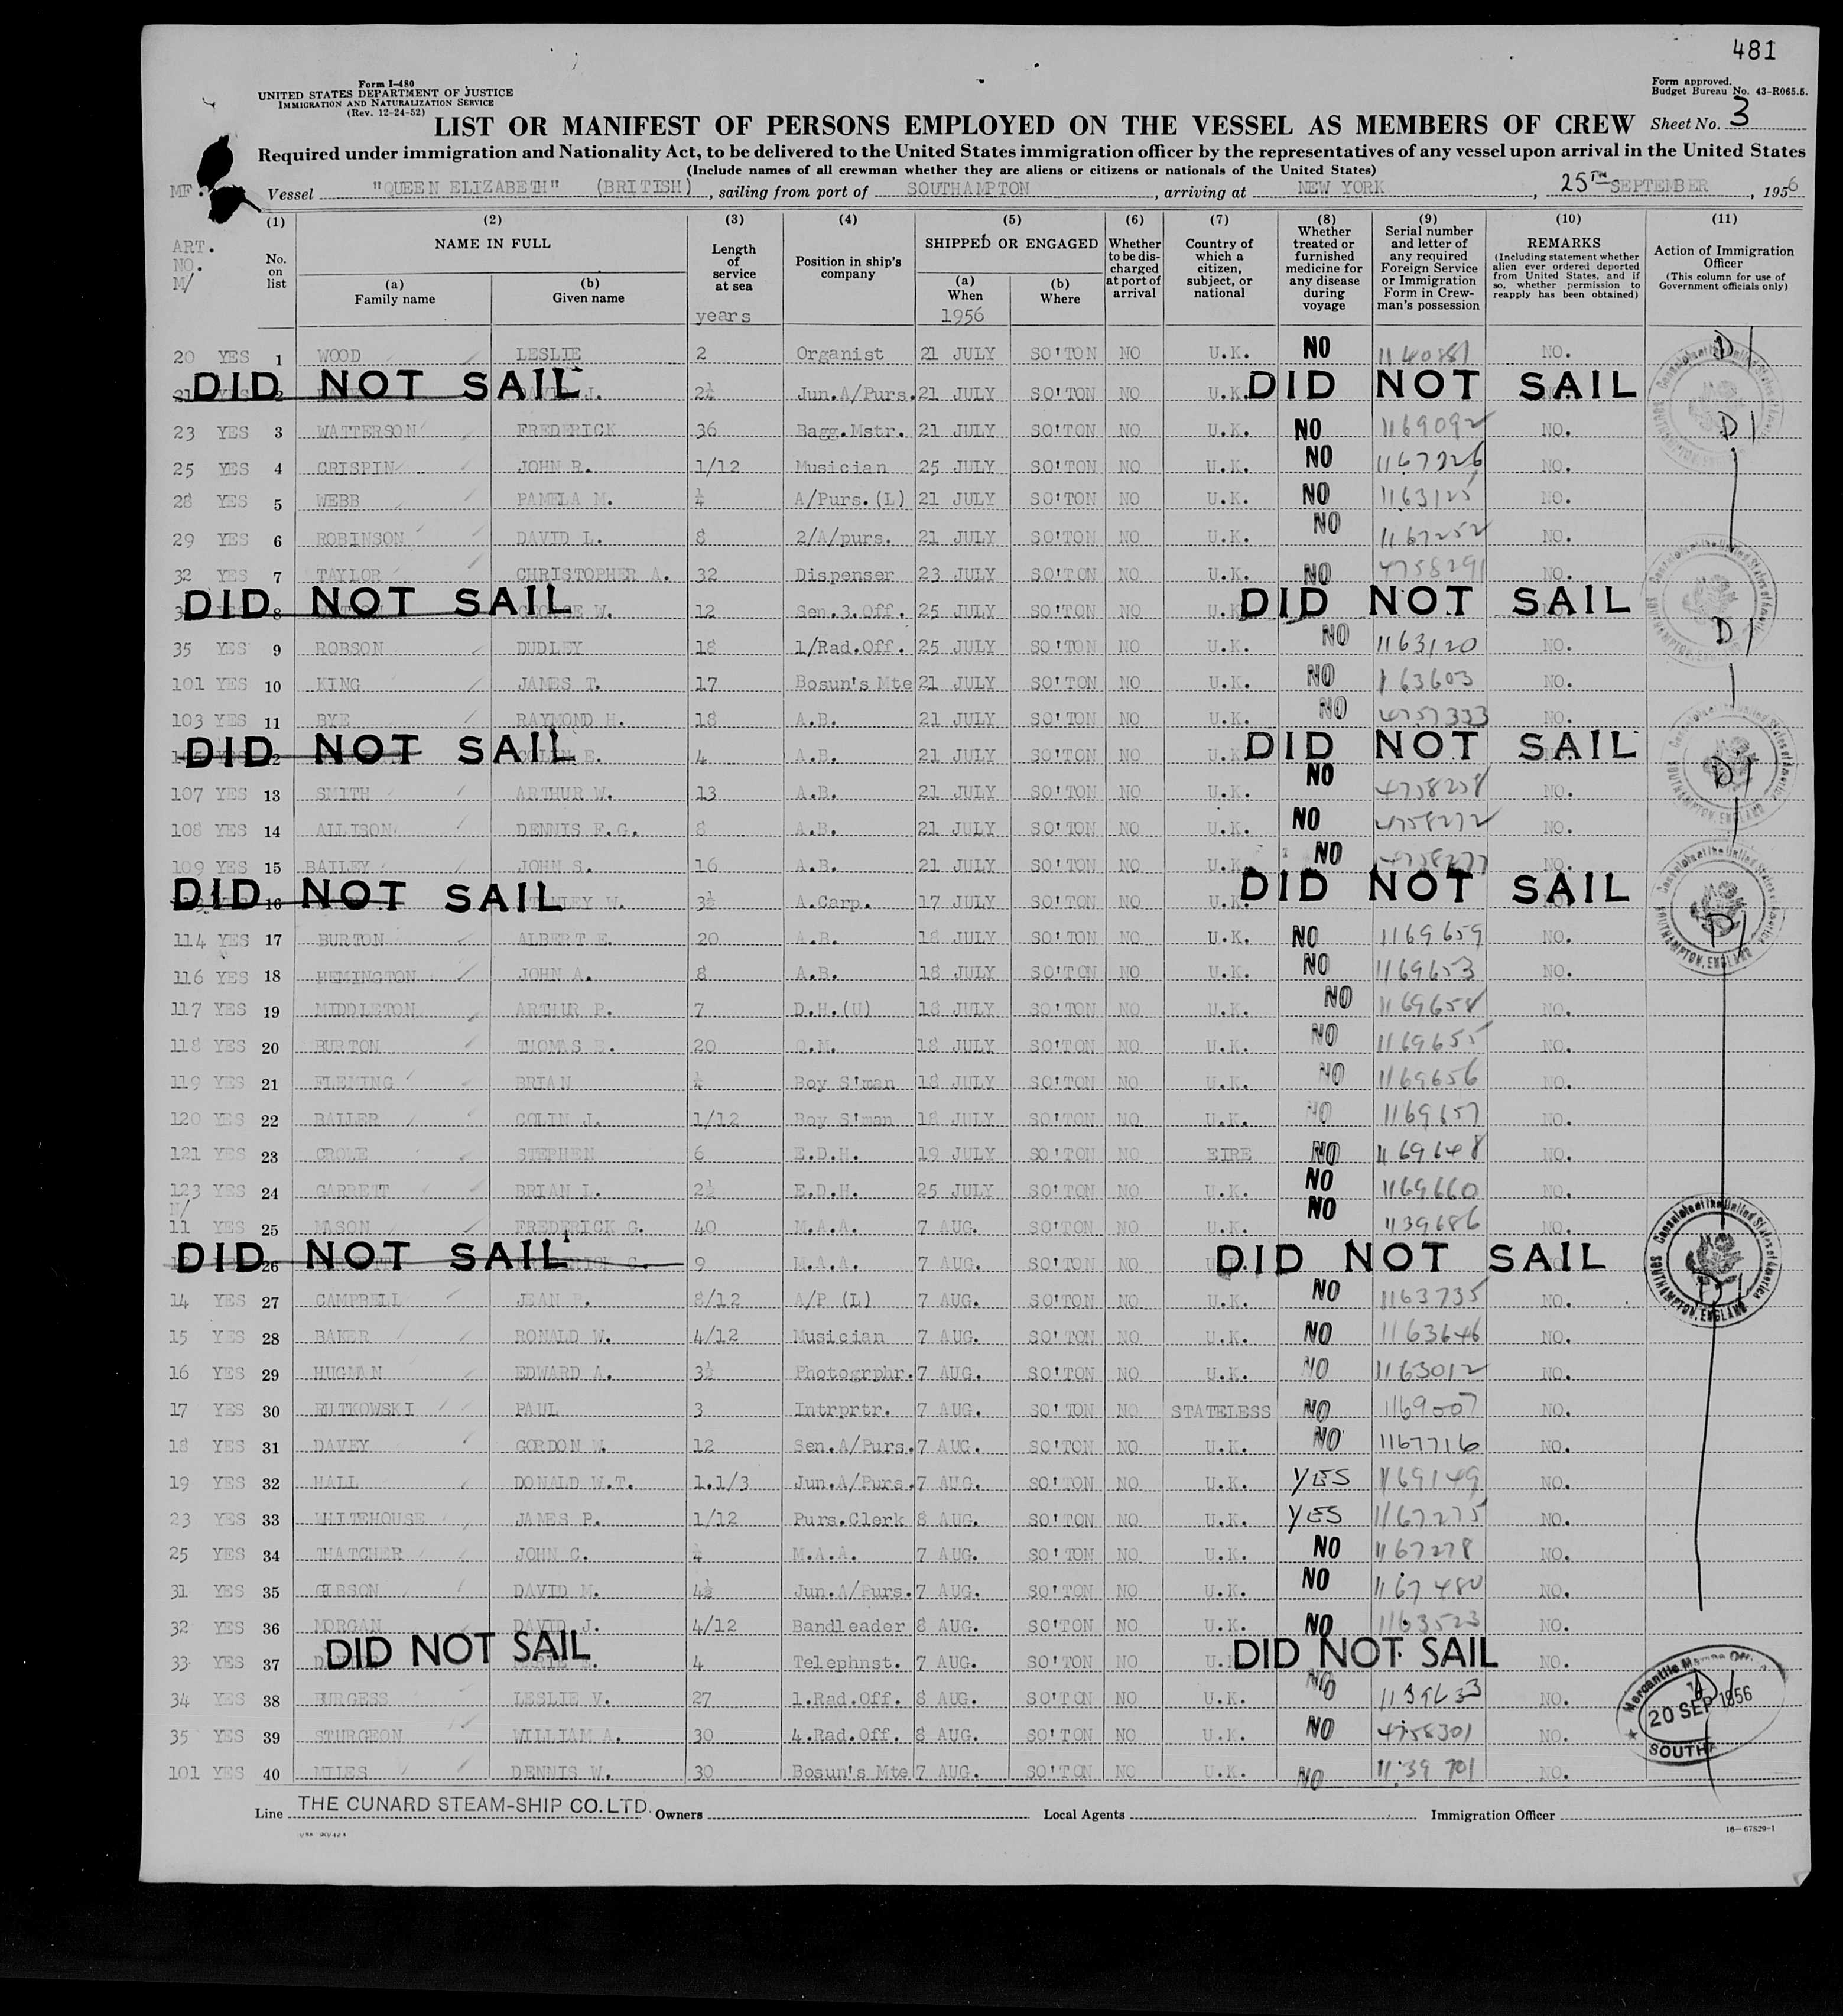 481
Form I-480
UNITED STATES DEPARTMENT OF JUSTICE
IMMIGRATION AND NATURALIZATION SERVICE
(Rev. 12-24-52)
Form approved.
Budget Bureau No. 43-R065.5.
LIST OR MANIFEST OF PERSONS EMPLOYED ON THE VESSEL AS MEMBERS OF CREW Sheet No. 3
Required under immigration and Nationality Act, to be delivered to the United States immigration officer by the representatives of any vessel upon arrival in the United States
(Include names of all crewman whether they are aliens or citizens or nationals of the United States)
MF. Vessel "QUEEN ELIZABETH" (BRITISH), sailing from port of SOUTHAMPTON, arriving at NEW YORK, 25TH SEPTEMBER, 1956
(1) (2) (3) (4) (5) (6) (7) (8) (9) (10) (11)
ART. NO. M/
No. on list
NAME IN FULL
(a) Family name
(b) Given name
Length of service at sea
years
Position in ship's company
SHIPPED OR ENGAGED
(a) When
1956
(b) Where
Whether to be discharged at port of arrival
Country of which a citizen, subject, or national
Whether treated or furnished medicine for any disease during voyage
Serial number and letter of any required Foreign Service or Immigration Form in Crewman's possession
REMARKS
(Including statement whether alien ever ordered deported from United States, and if so, whether permission to reapply has been obtained)
Action of Immigration Officer
(This column for use of Government officials only)
20 YES 1 WOOD LESLIE 2 Organist 21 JULY SO'TON NO U.K. NO 1140881 NO. D1
DID NOT SAIL J. 2½ Jun.A/Purs. 21 JULY SO'TON NO U.K. DID NOT SAIL
23 YES 3 WATTERSON FREDERICK 36 Bagg.Mstr. 21 JULY SO'TON NO U.K. NO 1169092 NO. D1
25 YES 4 CRISPIN JOHN R. 1/12 Musician 25 JULY SO'TON NO U.K. NO NO.
28 YES 5 WEBB PAMELA M. A/Purs.(L) 21 JULY SO'TON NO U.K. NO 1163125 NO.
29 YES 6 ROBINSON DAVID L. 8 2/A/purs. 21 JULY SO'TON NO U.K. NO 1167252 NO.
32 YES 7 TAYLOR CHRISTOPHER A. 32 Dispenser 23 JULY SO'TON NO U.K. NO 4758291 NO.
DID NOT SAIL GEORGE W. 12 Sen.3.Off. 25 JULY SO'TON NO U.K. DID NOT SAIL
35 YES 9 ROBSON DUDLEY 18 1/Rad.Off. 25 JULY SO'TON NO U.K. NO 1163120 NO. D1
101 YES 10 KING JAMES T. 17 Bosun's Mte 21 JULY SO'TON NO U.K. NO 163603 NO.
103 YES 11 BYE RAYMOND H. 18 A.B. 21 JULY SO'TON NO U.K. NO 4757333 NO.
DID NOT SAIL E. 4 A.B. 21 JULY SO'TON NO U.K. DID NOT SAIL
107 YES 13 SMITH ARTHUR W. 13 A.B. 21 JULY SO'TON NO U.K. NO 4758258 NO. D1
108 YES 14 ALLISON DENNIS F.G. 8 A.B. 21 JULY SO'TON NO U.K. NO 4758272 NO.
109 YES 15 BAILEY JOHN S. 16 A.B. 21 JULY SO'TON NO U.K. NO 4758277 NO.
DID NOT SAIL W. 3½ A.Carp. 17 JULY SO'TON NO U.K. DID NOT SAIL
114 YES 17 BURTON ALBERT E. 20 A.B. 18 JULY SO'TON NO U.K. NO 1169659 NO. D1
116 YES 18 HEMINGTON JOHN A. 8 A.B. 18 JULY SO'TON NO U.K. NO 1169653 NO.
117 YES 19 MIDDLETON ARTHUR P. 7 D.H.(U) 18 JULY SO'TON NO U.K. NO 1169658 NO.
118 YES 20 BURTON THOMAS E. 20 Q.M. 18 JULY SO'TON NO U.K. NO 1169655 NO.
119 YES 21 FLEMING BRIAN Boy S'man 18 JULY SO'TON NO U.K. NO 1169656 NO.
120 YES 22 BALLER COLIN J. 1/12 Boy S'man 18 JULY SO'TON NO U.K. NO 1169657 NO.
121 YES 23 STEPHEN 6 E.D.H. 19 JULY SO'TON NO EIRE NO 1169648 NO.
123 YES 24 GARRETT BRIAN L. 2½ E.D.H. 25 JULY SO'TON NO U.K. NO 1169660 NO.
M/
11 YES 25 MASON FREDERICK G. 40 M.A.A. 7 AUG. SO'TON NO U.K. NO 1139686 NO.
DID NOT SAIL 26 9 M.A.A. 7 AUG. SO'TON NO DID NOT SAIL
14 YES 27 CAMPBELL JEAN 8/12 A/P (L) 7 AUG. SO'TON NO U.K. NO 1163735 NO. D1
15 YES 28 BAKER RONALD W. 4/12 Musician 7 AUG. SO'TON NO U.K. NO 1163646 NO.
16 YES 29 HUGMAN EDWARD A. 3½ Photogrphr. 7 AUG. SO'TON NO U.K. NO 1163012 NO.
17 YES 30 RUTKOWSKI PAUL 3 Intrprtr. 7 AUG. SO'TON NO STATELESS NO 1169007 NO.
18 YES 31 DAVEY GORDON W. 12 Sen.A/Purs. 7 AUG. SO'TON NO U.K. NO 1167716 NO.
19 YES 32 HALL DONALD W.T. 1.1/3 Jun.A/Purs. 7 AUG. SO'TON NO U.K. YES 1169149 NO.
23 YES 33 WHITEHOUSE JAMES P. 1/12 Purs.Clerk 8 AUG. SO'TON NO U.K. YES 1167275 NO.
25 YES 34 THATCHER JOHN C. M.A.A. 7 AUG. SO'TON NO U.K. NO 1167278 NO.
31 YES 35 GIBSON DAVID M. 4½ Jun.A/Purs. 7 AUG. SO'TON NO U.K. NO 1167480 NO.
32 YES 36 MORGAN DAVID J. 4/12 Bandleader 8 AUG. SO'TON NO U.K. NO 1163523 NO.
33 YES 37 DID NOT SAIL 4 Telephnst. 7 AUG. SO'TON NO DID NOT SAIL NO.
34 YES 38 BURGESS LESLIE V. 27 1.Rad.Off. 8 AUG. SO'TON NO U.K. NO 1139633 NO. D1
35 YES 39 STURGEON WILLIAM A. 30 4.Rad.Off. 8 AUG. SO'TON NO U.K. NO 4758301 NO.
101 YES 40 MILES DENNIS W. 30 Bosun's Mte 7 AUG. SO'TON NO U.K. NO 1139701 NO.
Consulate of the United States of America
SOUTHAMPTON, ENGLAND
Mercantile Marine
20 SEP 1956
Line THE CUNARD STEAM-SHIP CO. LTD. Owners Local Agents Immigration Officer
16-67829-1